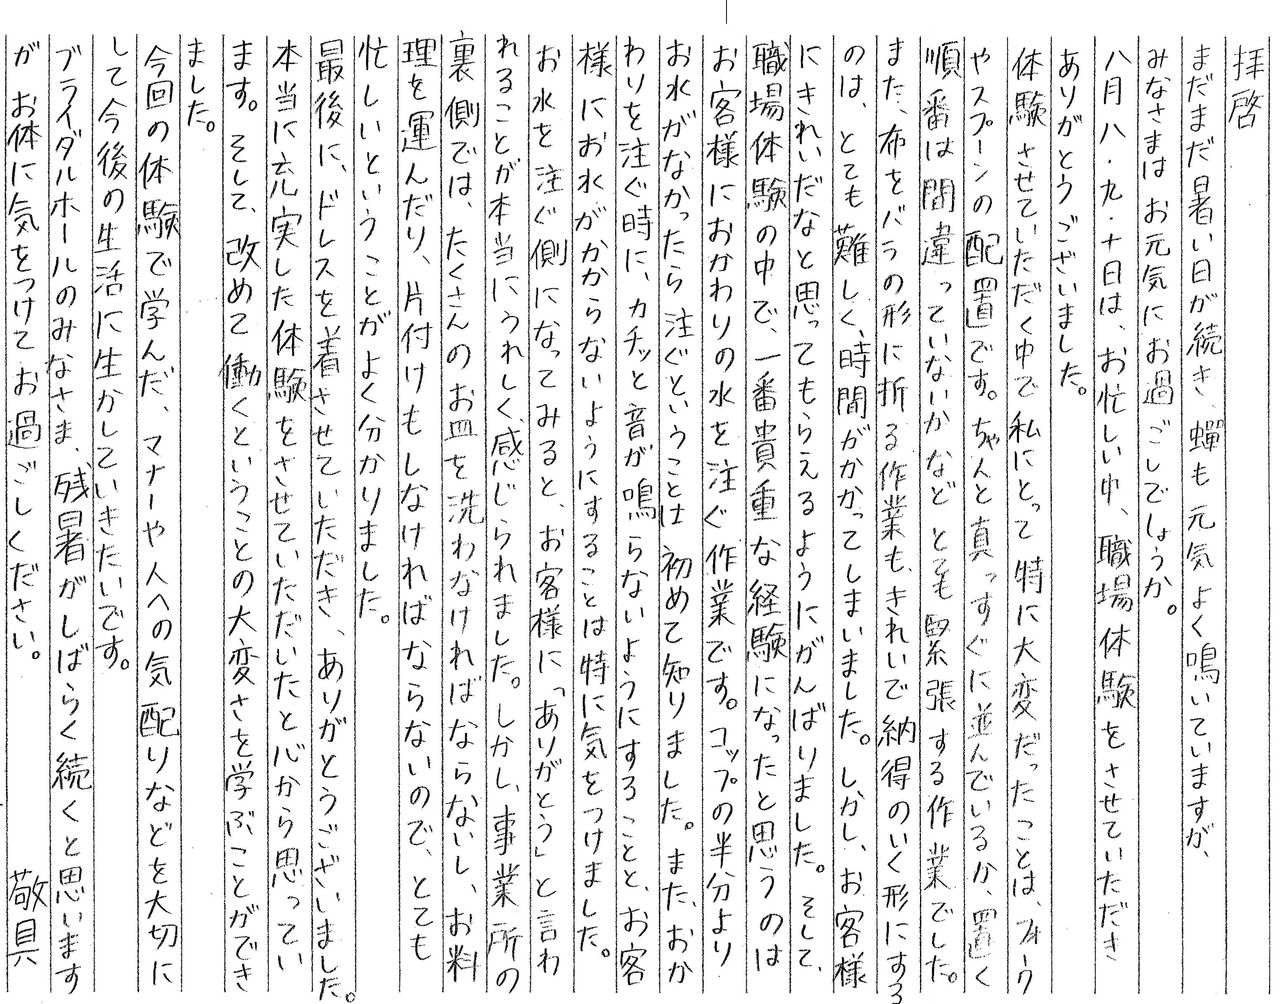 拝啓
まだまだ暑い日が続き、蟬も元気よく鳴いていますが、
みなさまはお元気にお過ごしでしょうか。
八月八・九・十日は、お忙しい中、職場体験をさせていただき
ありがとうございました。
体験させていただく中で私にとって特に大変だったことは、フォーク
やスプーンの配置です。ちゃんと真っすぐに並んでいるか、置く
順番は間違っていないかなどとても緊張する作業でした。
また、布をバラの形に折る作業も、きれいで納得のいく形にする
のは、とても難しく、時間がかかってしまいました。しかし、お客様
にきれいだなと思ってもらえるようにがんばりました。そして、
職場体験の中で、一番貴重な経験になったと思うのは
お客様におかわりの水を注ぐ作業です。コップの半分より
お水がなかったら注ぐということは初めて知りました。また、おか
わりを注ぐ時に、カチッと音が鳴らないようにすることと、お客
様にお水がかからないようにすることは特に気をつけました。
お水を注ぐ側になってみると、お客様に「ありがとう」と言わ
れることが本当にうれしく感じられました。しかし、事業所の
裏側では、たくさんのお皿を洗わなければならないし、お料
理を運んだり、片付けもしなければならないので、とても
忙しいということがよく分かりました。
最後に、ドレスを着させていただき、ありがとうございました。
本当に充実した体験をさせていただいたと心から思ってい
ます。そして、改めて働くということの大変さを学ぶことができ
ました。
今回の体験で学んだ、マナーや人への気配りなどを大切に
して今後の生活に生かしていきたいです。
ブライダルホールのみなさま、残暑がしばらく続くと思います
が お体に気をつけてお過ごしください。 敬具